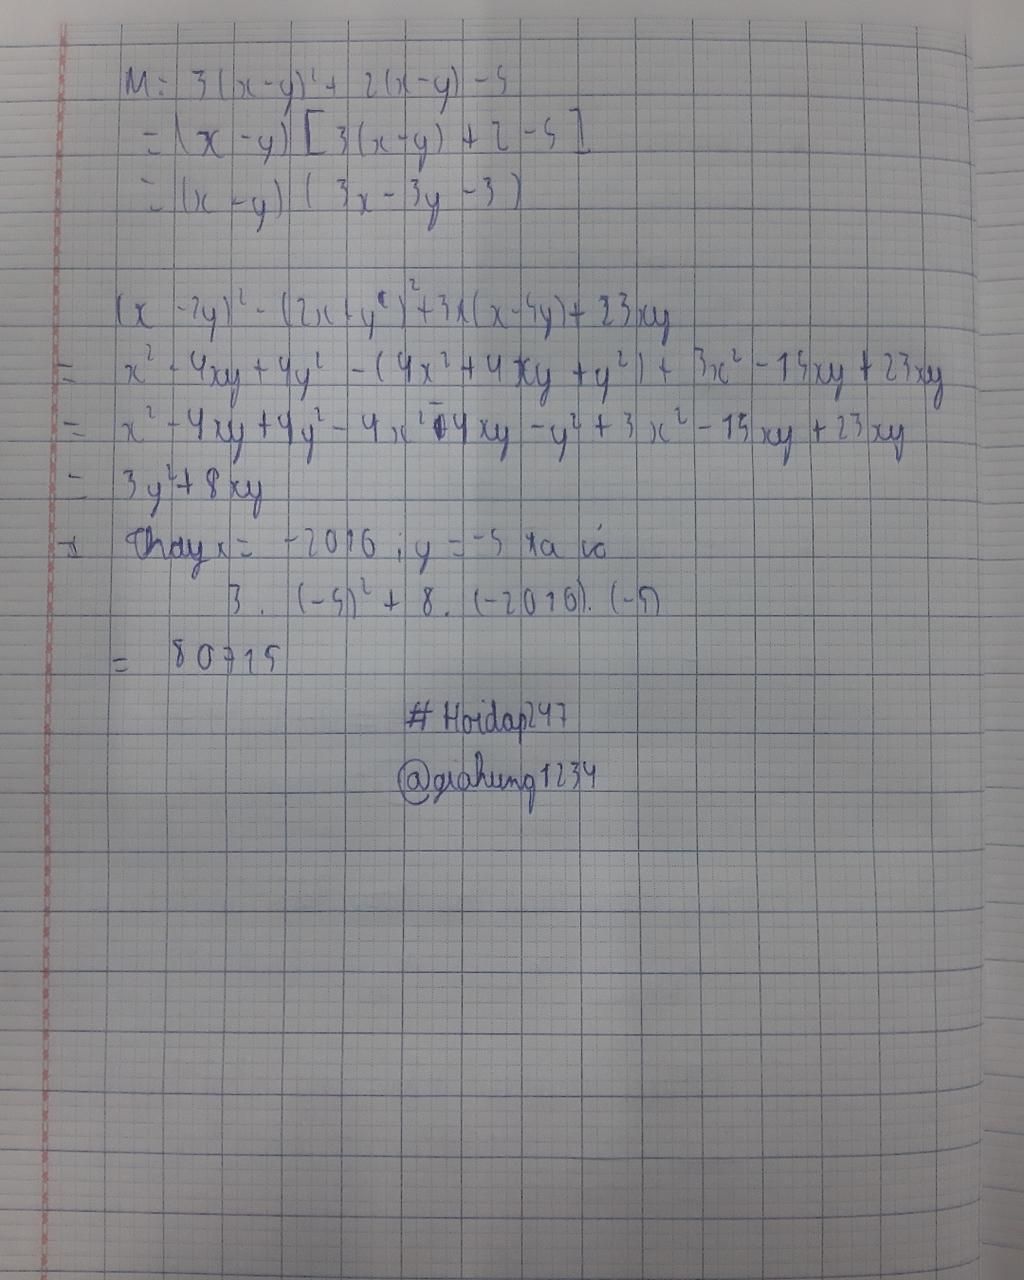 M = 3(x-y)² + 2(x-y) - 5
= (x-y)[3(x-y) + 2 - 5]
= (x-y)(3x - 3y - 3)
(x - 2y)² - (2x + y)² + 3x(x - 5y) + 23xy
= x² - 4xy + 4y² - (4x² + 4xy + y²) + 3x² - 15xy + 23xy
= x² - 4xy + 4y² - 4x² - 4xy - y² + 3x² - 15xy + 23xy
= 3y² + 8xy
Thay x = -2016 ; y = -5 ta có
3. (-5)² + 8. (-2016). (-5)
= 80715
# Hoidap247
@giahung1234